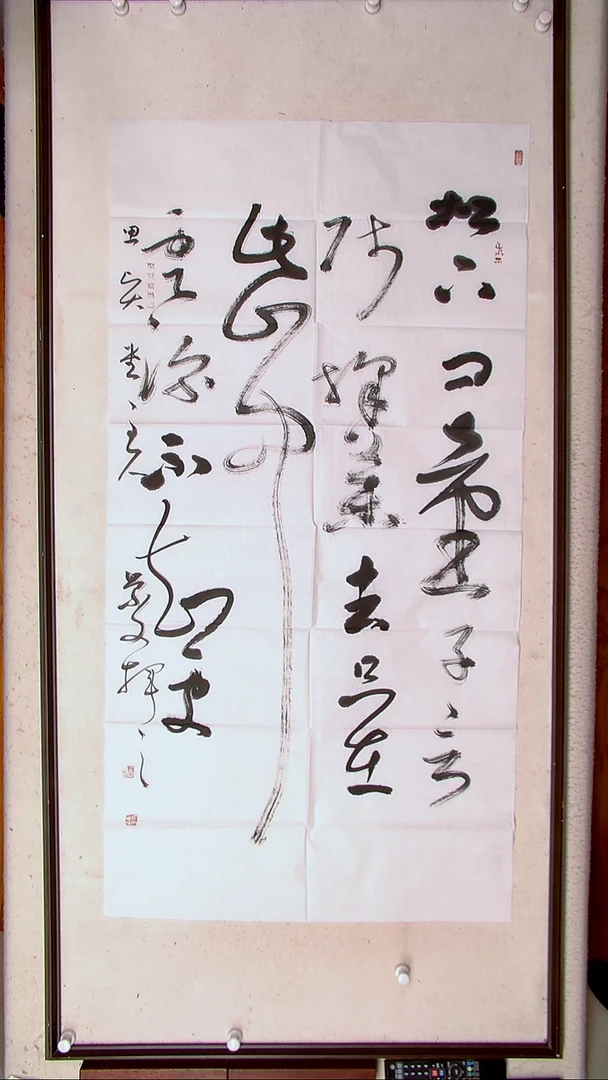 松下問童子言
師採藥去只在
此山中
雲深不知處